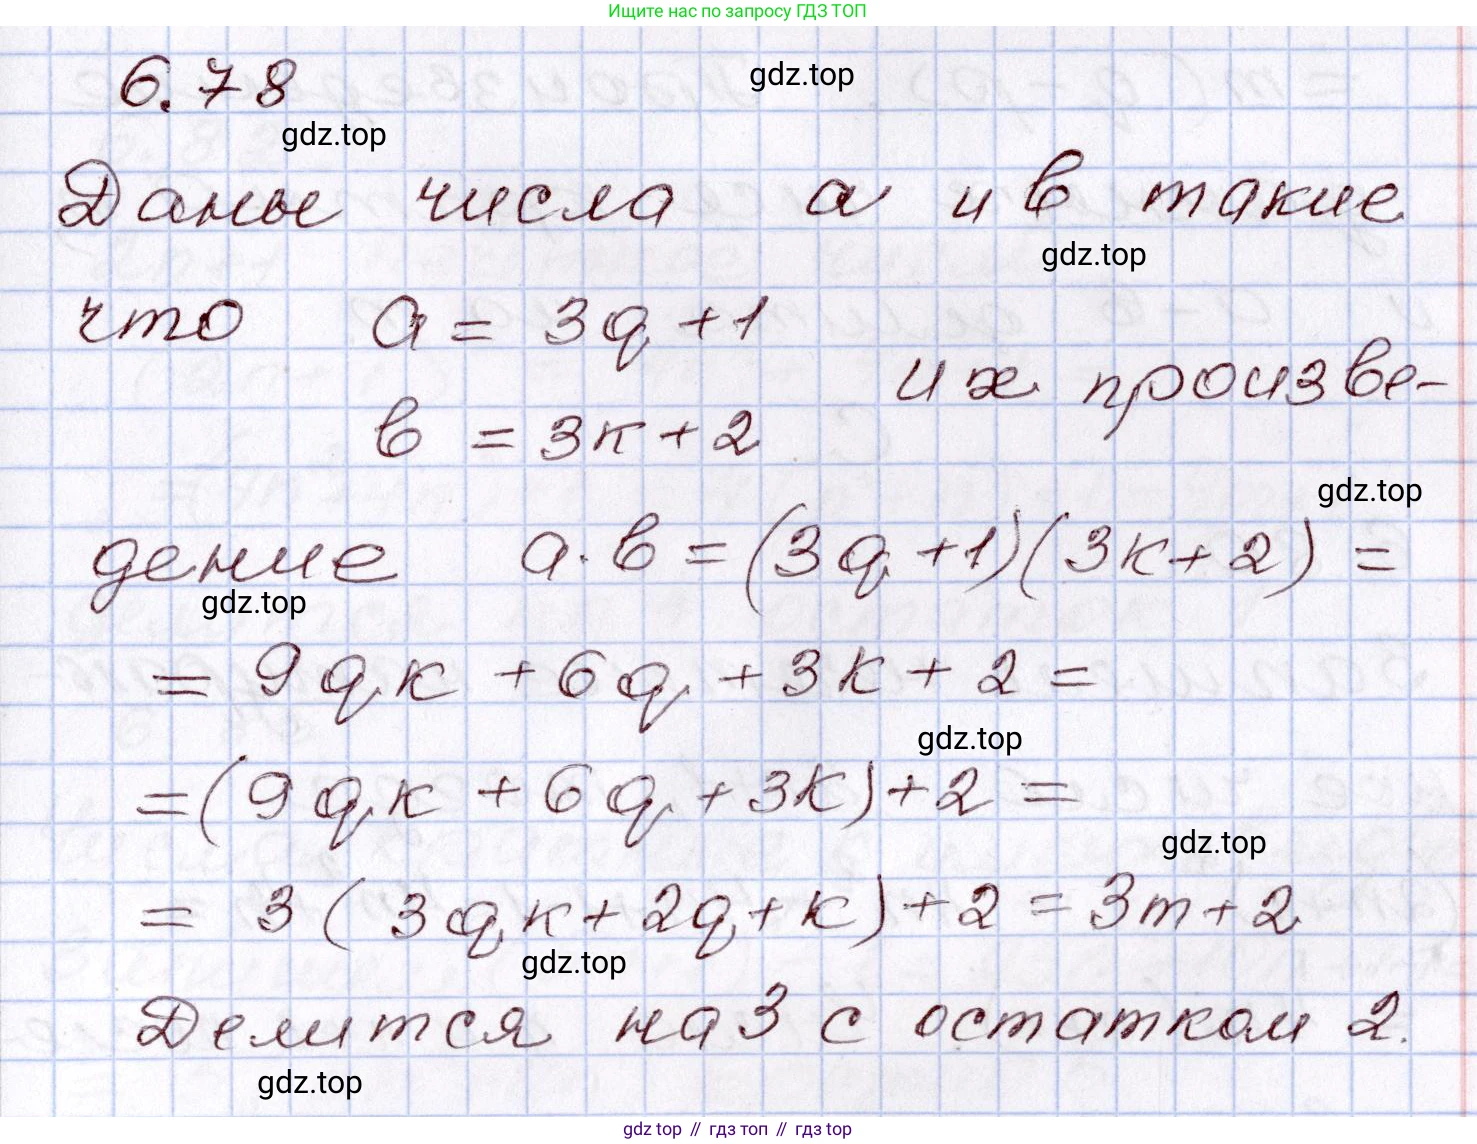 Ищите нас по запросу ГДЗ ТОП
6.78
gdz.top
gdz.top
Даны числа a и в такие
gdz.top
что a = 3q + 1
их произве-
в = 3к + 2
gdz.top
дение a · в = (3q + 1)(3к + 2) =
gdz.top
= 9qк + 6q + 3к + 2 =
gdz.top
= (9qк + 6q + 3к) + 2 =
gdz.top
= 3 (3qк + 2q + к) + 2 = 3m + 2
gdz.top
Делится на 3 с остатком 2.
gdz.top
gdz top // гдз топ // гдз top